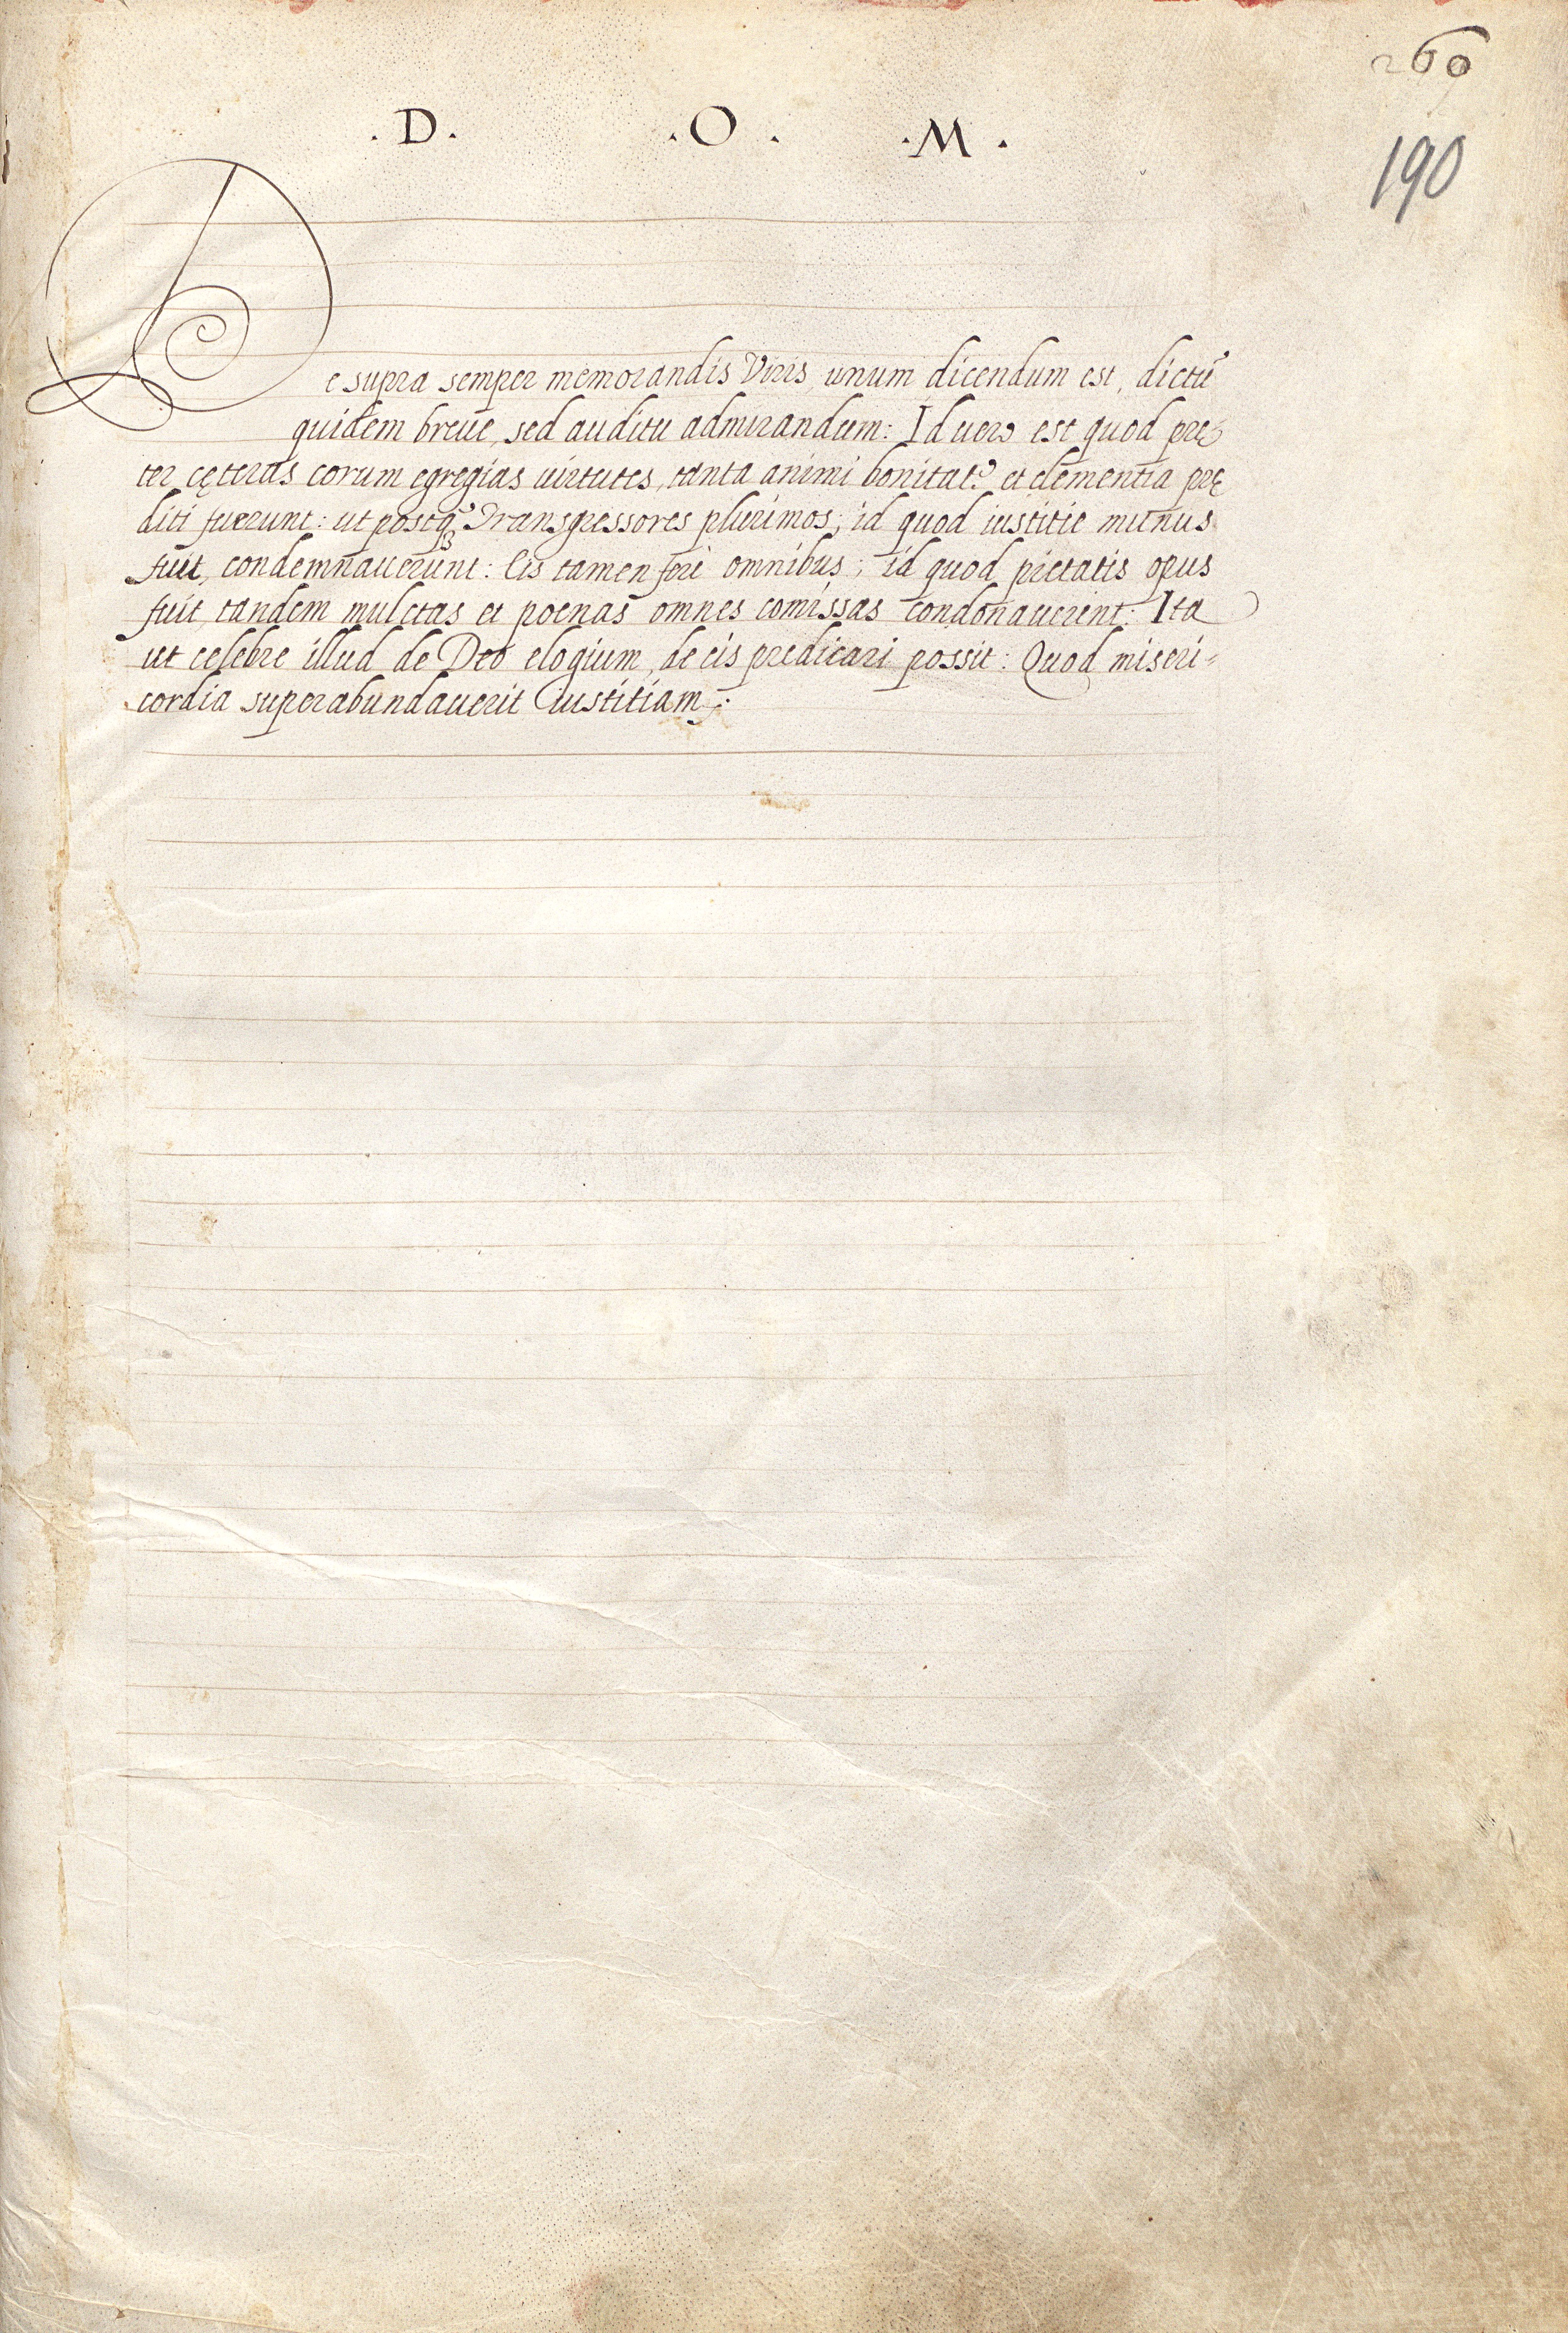 260
190
.D. .O. .M.
De supra semper memorandis Viris unum dicendum est, dictũ
quidem breue, sed auditu admirandum: Id uero est quod prę
ter cęteras eorum egregias uirtutes, tanta animi bonitate et clementia prę
diti fuerunt: ut postq̃ Transgressores plurimos; id quod iustitie munus
fuit, condemnauerunt: Eis tamen fere omnibus; id quod pietatis opus
fuit, tandem mulctas et poenas omnes comissas condonauerint: Ita
ut celebre illud de Deo elogium, de eis predicari possit: Quod miseri=
cordia superabundauerit iustitiam: